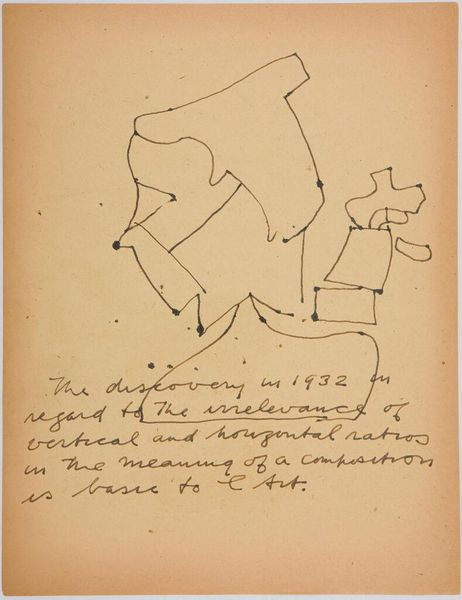 The discovery in 1932 in
regard to the irrelevance of
vertical and horizontal ratios
in the meaning of a composition
is basic to l Art.